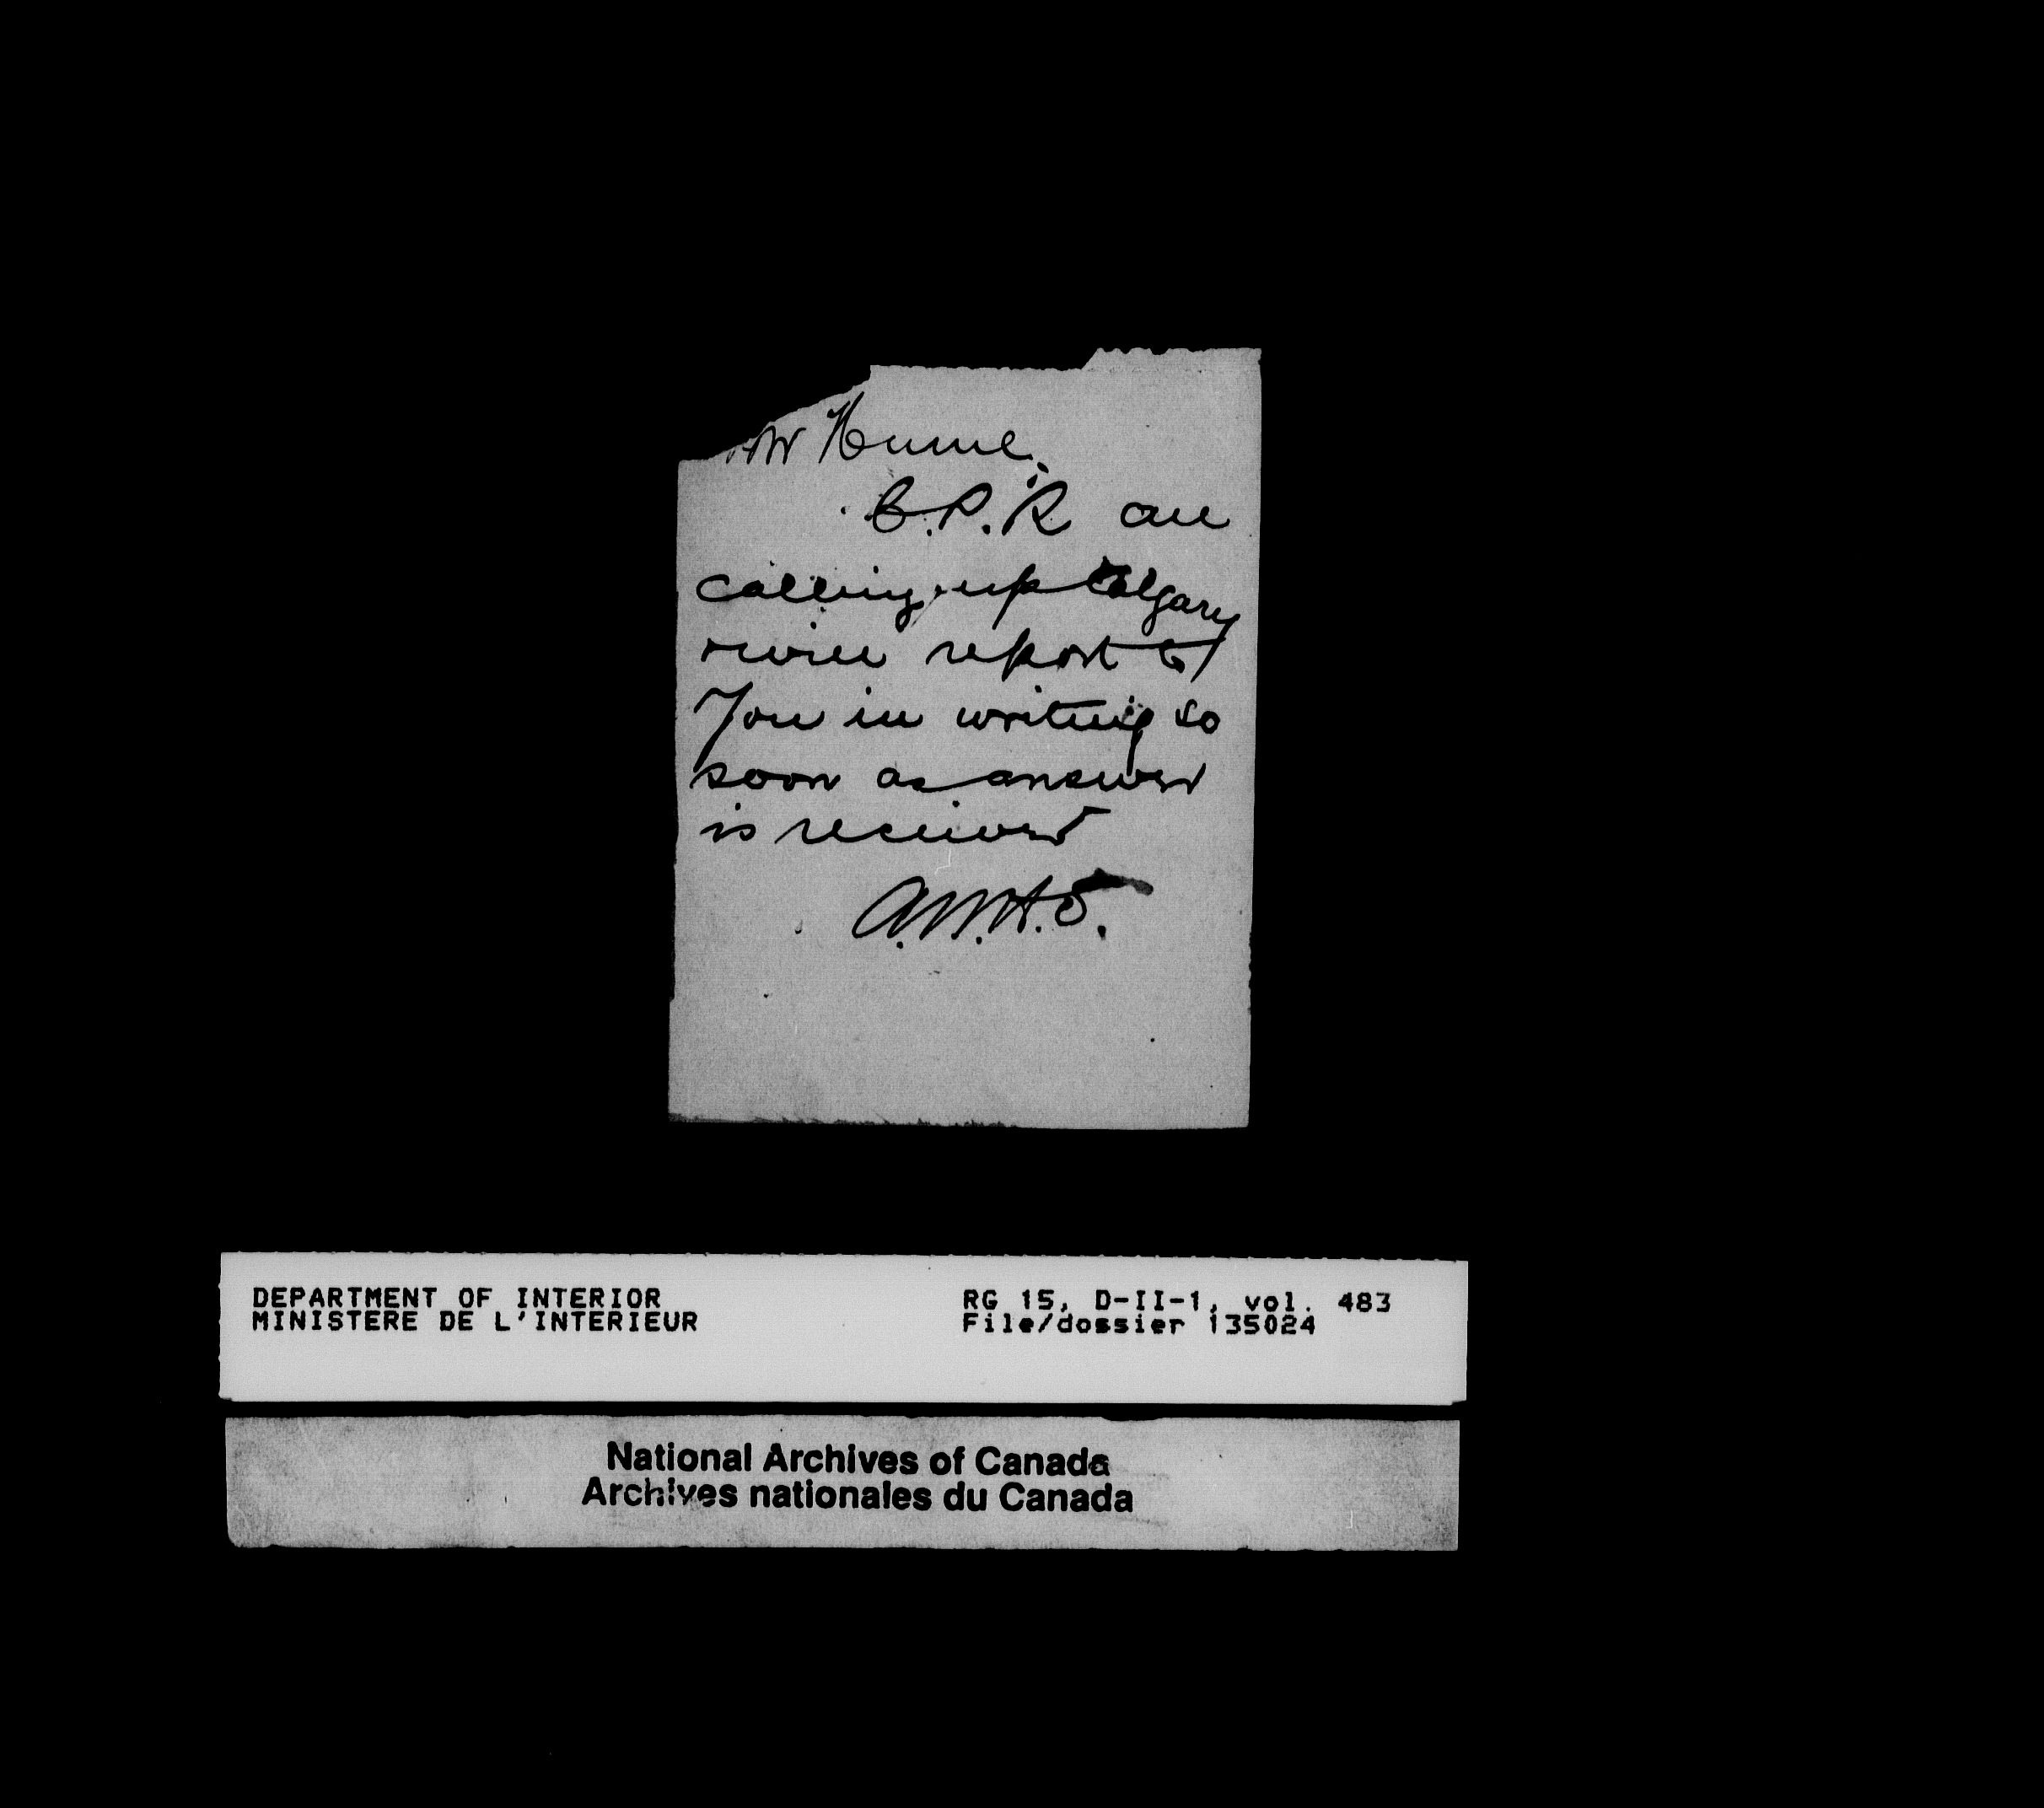 Mr Hume.
C.P.R are
calling up Calgary
& will report to
you in writing so
soon as answer
is received
DEPARTMENT OF INTERIOR
MINISTERE DE L'INTERIEUR
RG 15, D-II-1, vol. 483
File/dossier 135024
National Archives of Canada
Archives nationales du Canada